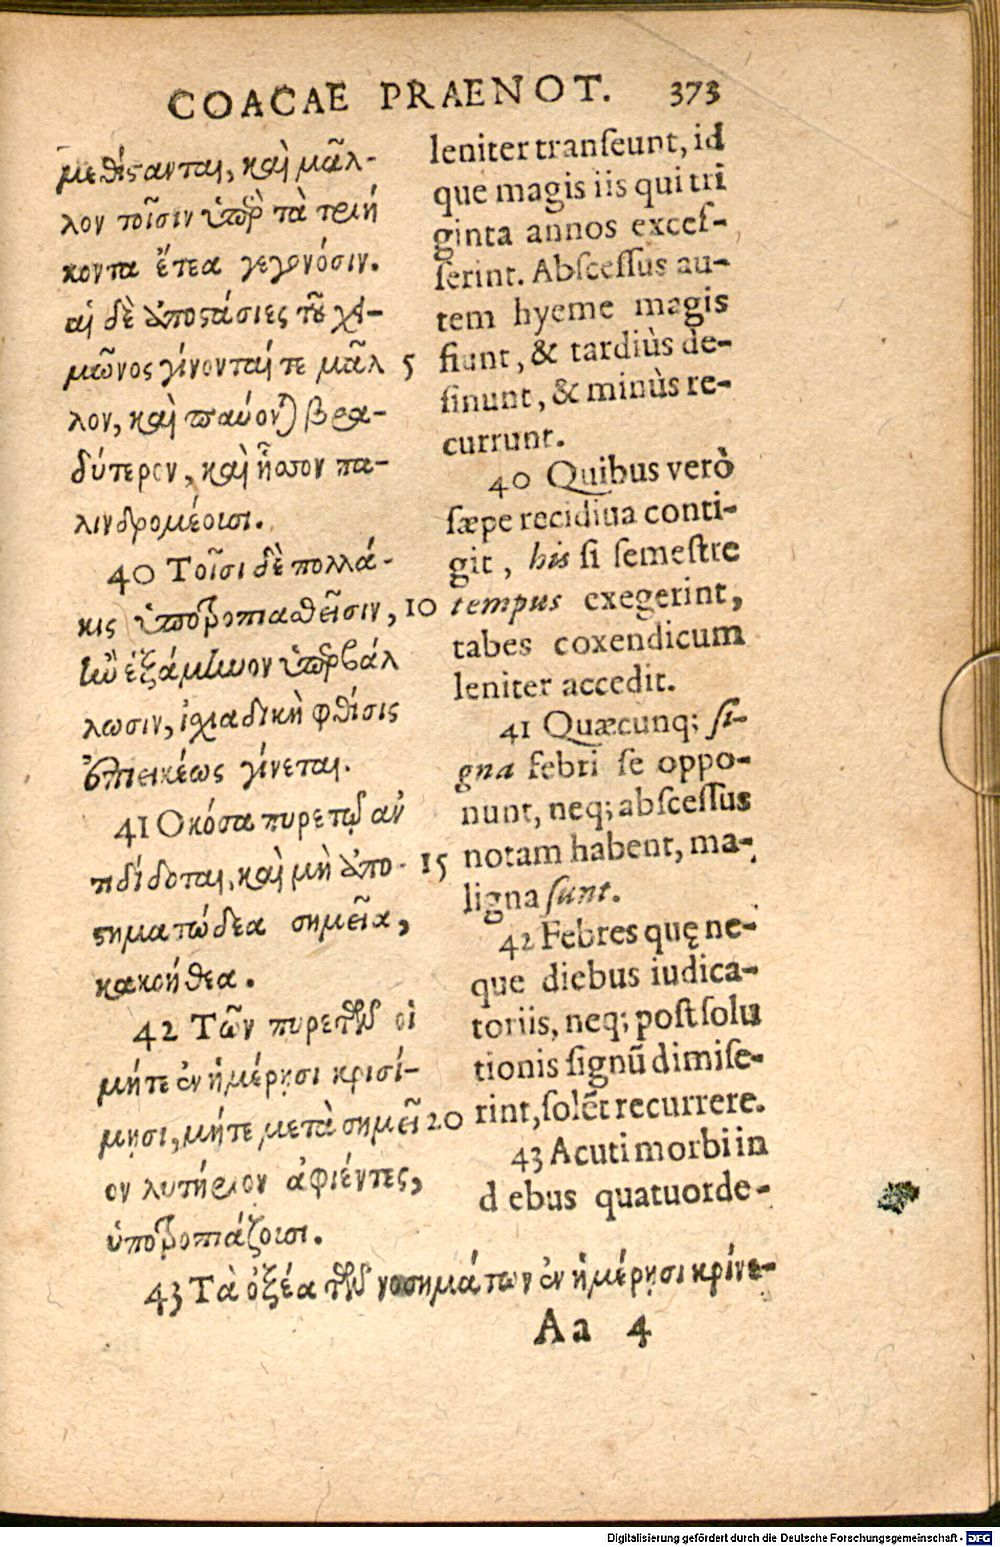 COACAE PRAENOT. 373
μεθίστανται, καὶ μᾶλ-
λον τοῖσιν ὑπὲρ τὰ τριή
κοντα ἔτεα γεγονόσιν.
αἱ δὲ ἀποστάσιες τοῦ χει-
μῶνος γίνονταί τε μᾶλ
λον, καὶ παύονται βρα-
δύτερον, καὶ ἧσσον πα-
λινδρομέουσι.
40 Τοῖσι δὲ πολλά-
κις ὑποτροπιασθεῖσιν,
ἢν ἑξάμηνον ὑπερβάλ
λωσιν, ἰσχιαδικὴ φθίσις
ἐπιεικέως γίνεται.
41 Οκόσα πυρετῷ ἀν
τιδίδοται, καὶ μὴ ἀπο-
στηματώδεα σημεῖα,
κακοήθεα.
42 Τῶν πυρετῶν οἱ
μήτε ἐν ἡμέρῃσι κρισί-
μῃσι, μήτε μετὰ σημεῖ
ον λυτήριον ἀφιέντες,
ὑποτροπιάζουσι.
43 Τὰ ὀξέα τῶν νοσημάτων ἐν ἡμέρῃσι κρίνε-
5
10
15
20
leniter transeunt, id
que magis iis qui tri
ginta annos exces-
serint. Abscessus au-
tem hyeme magis
fiunt, & tardiùs de-
sinunt, & minùs re-
currunt.
40 Quibus verò
sæpe recidiua conti-
git, his si semestre
tempus exegerint,
tabes coxendicum
leniter accedit.
41 Quæcunq; si-
gna febri se oppo-
nunt, neq; abscessus
notam habent, ma-
ligna sunt.
42 Febres quę ne-
que diebus iudica-
toriis, neq; post solu
tionis signū dimise-
rint, solēt recurrere.
43 Acuti morbi in
d ebus quatuorde-
Aa 4
Digitalisierung gefördert durch die Deutsche Forschungsgemeinschaft - DFG